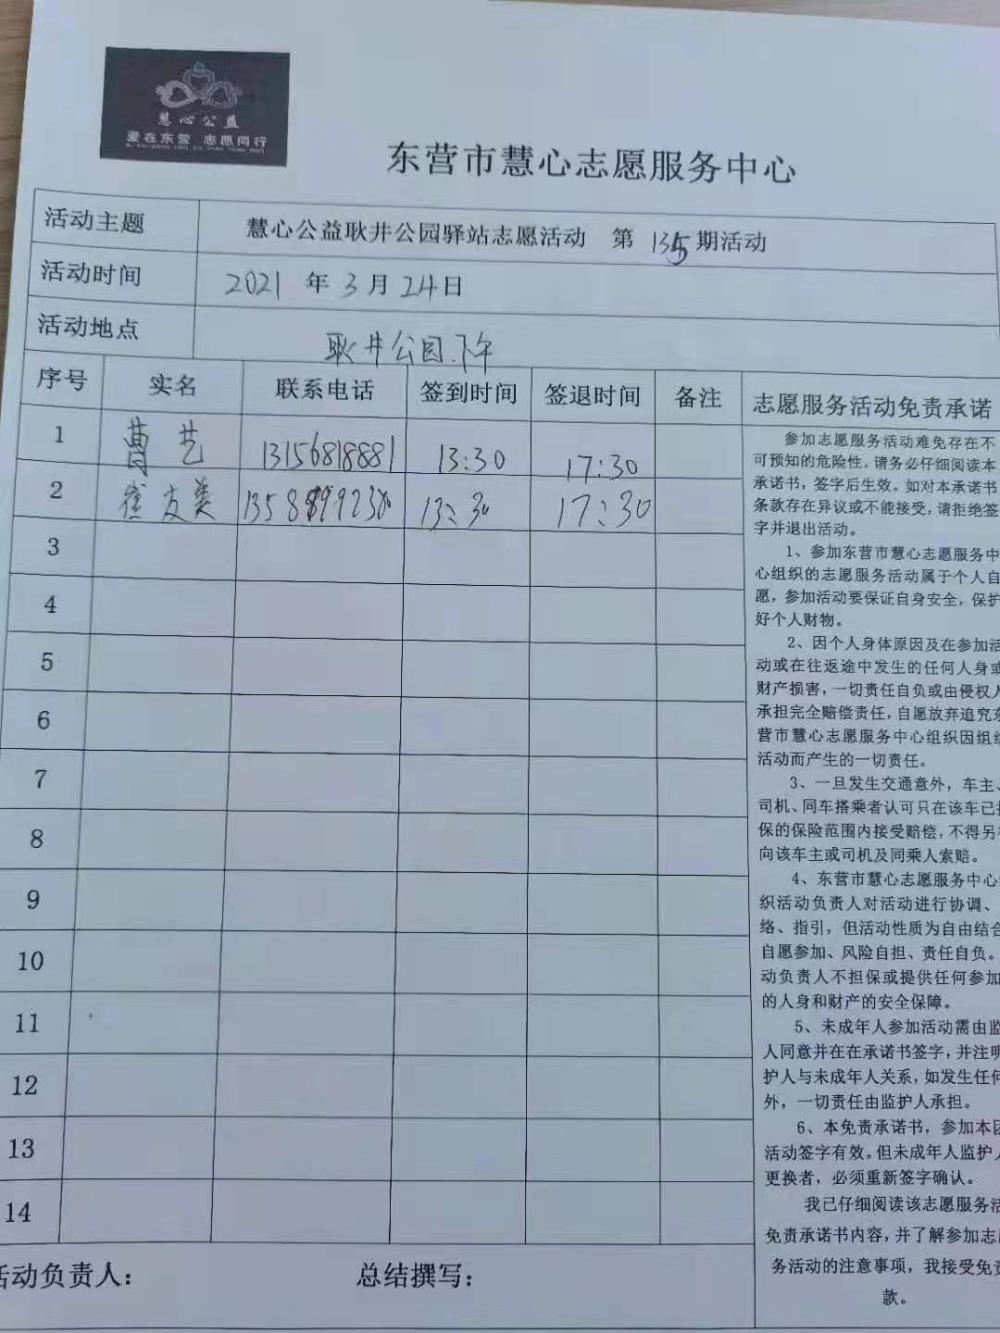 慧心公益
爱在东营 志愿同行
东营市慧心志愿服务中心
活动主题 慧心公益耿井公园驿站志愿活动 第 135 期活动
活动时间 2021 年 3 月 24 日
活动地点 耿井公园.下午
序号 实名 联系电话 签到时间 签退时间 备注
1 芑 13156818881 13:30 17:30
2 崔友美 13:30 17:30
3
4
5
6
7
8
9
10
11
12
13
14
活动负责人： 总结撰写：
志愿服务活动免责承诺
参加志愿服务活动难免存在不
可预知的危险性，请务必仔细阅读本
承诺书，签字后生效。如对本承诺书
条款存在异议或不能接受，请拒绝签
字并退出活动。
1、参加东营市慧心志愿服务中
心组织的志愿服务活动属于个人自
愿，参加活动要保证自身安全，保护
好个人财物。
2、因个人身体原因及在参加活
动或在往返途中发生的任何人身或
财产损害，一切责任自负或由侵权人
承担完全赔偿责任，自愿放弃追究东
营市慧心志愿服务中心组织因组织
活动而产生的一切责任。
3、一旦发生交通意外，车主、
司机、同车搭乘者认可只在该车已投
保的保险范围内接受赔偿，不得另行
向该车主或司机及同乘人索赔。
4、东营市慧心志愿服务中心
织活动负责人对活动进行协调、
络、指引，但活动性质为自由结合
自愿参加、风险自担、责任自负。
动负责人不担保或提供任何参加
的人身和财产的安全保障。
5、未成年人参加活动需由监
人同意并在在承诺书签字，并注明
护人与未成年人关系，如发生任何
外，一切责任由监护人承担。
6、本免责承诺书，参加本团
活动签字有效。但未成年人监护人
更换者，必须重新签字确认。
我已仔细阅读该志愿服务活
免责承诺书内容，并了解参加志愿
务活动的注意事项，我接受免责
款。